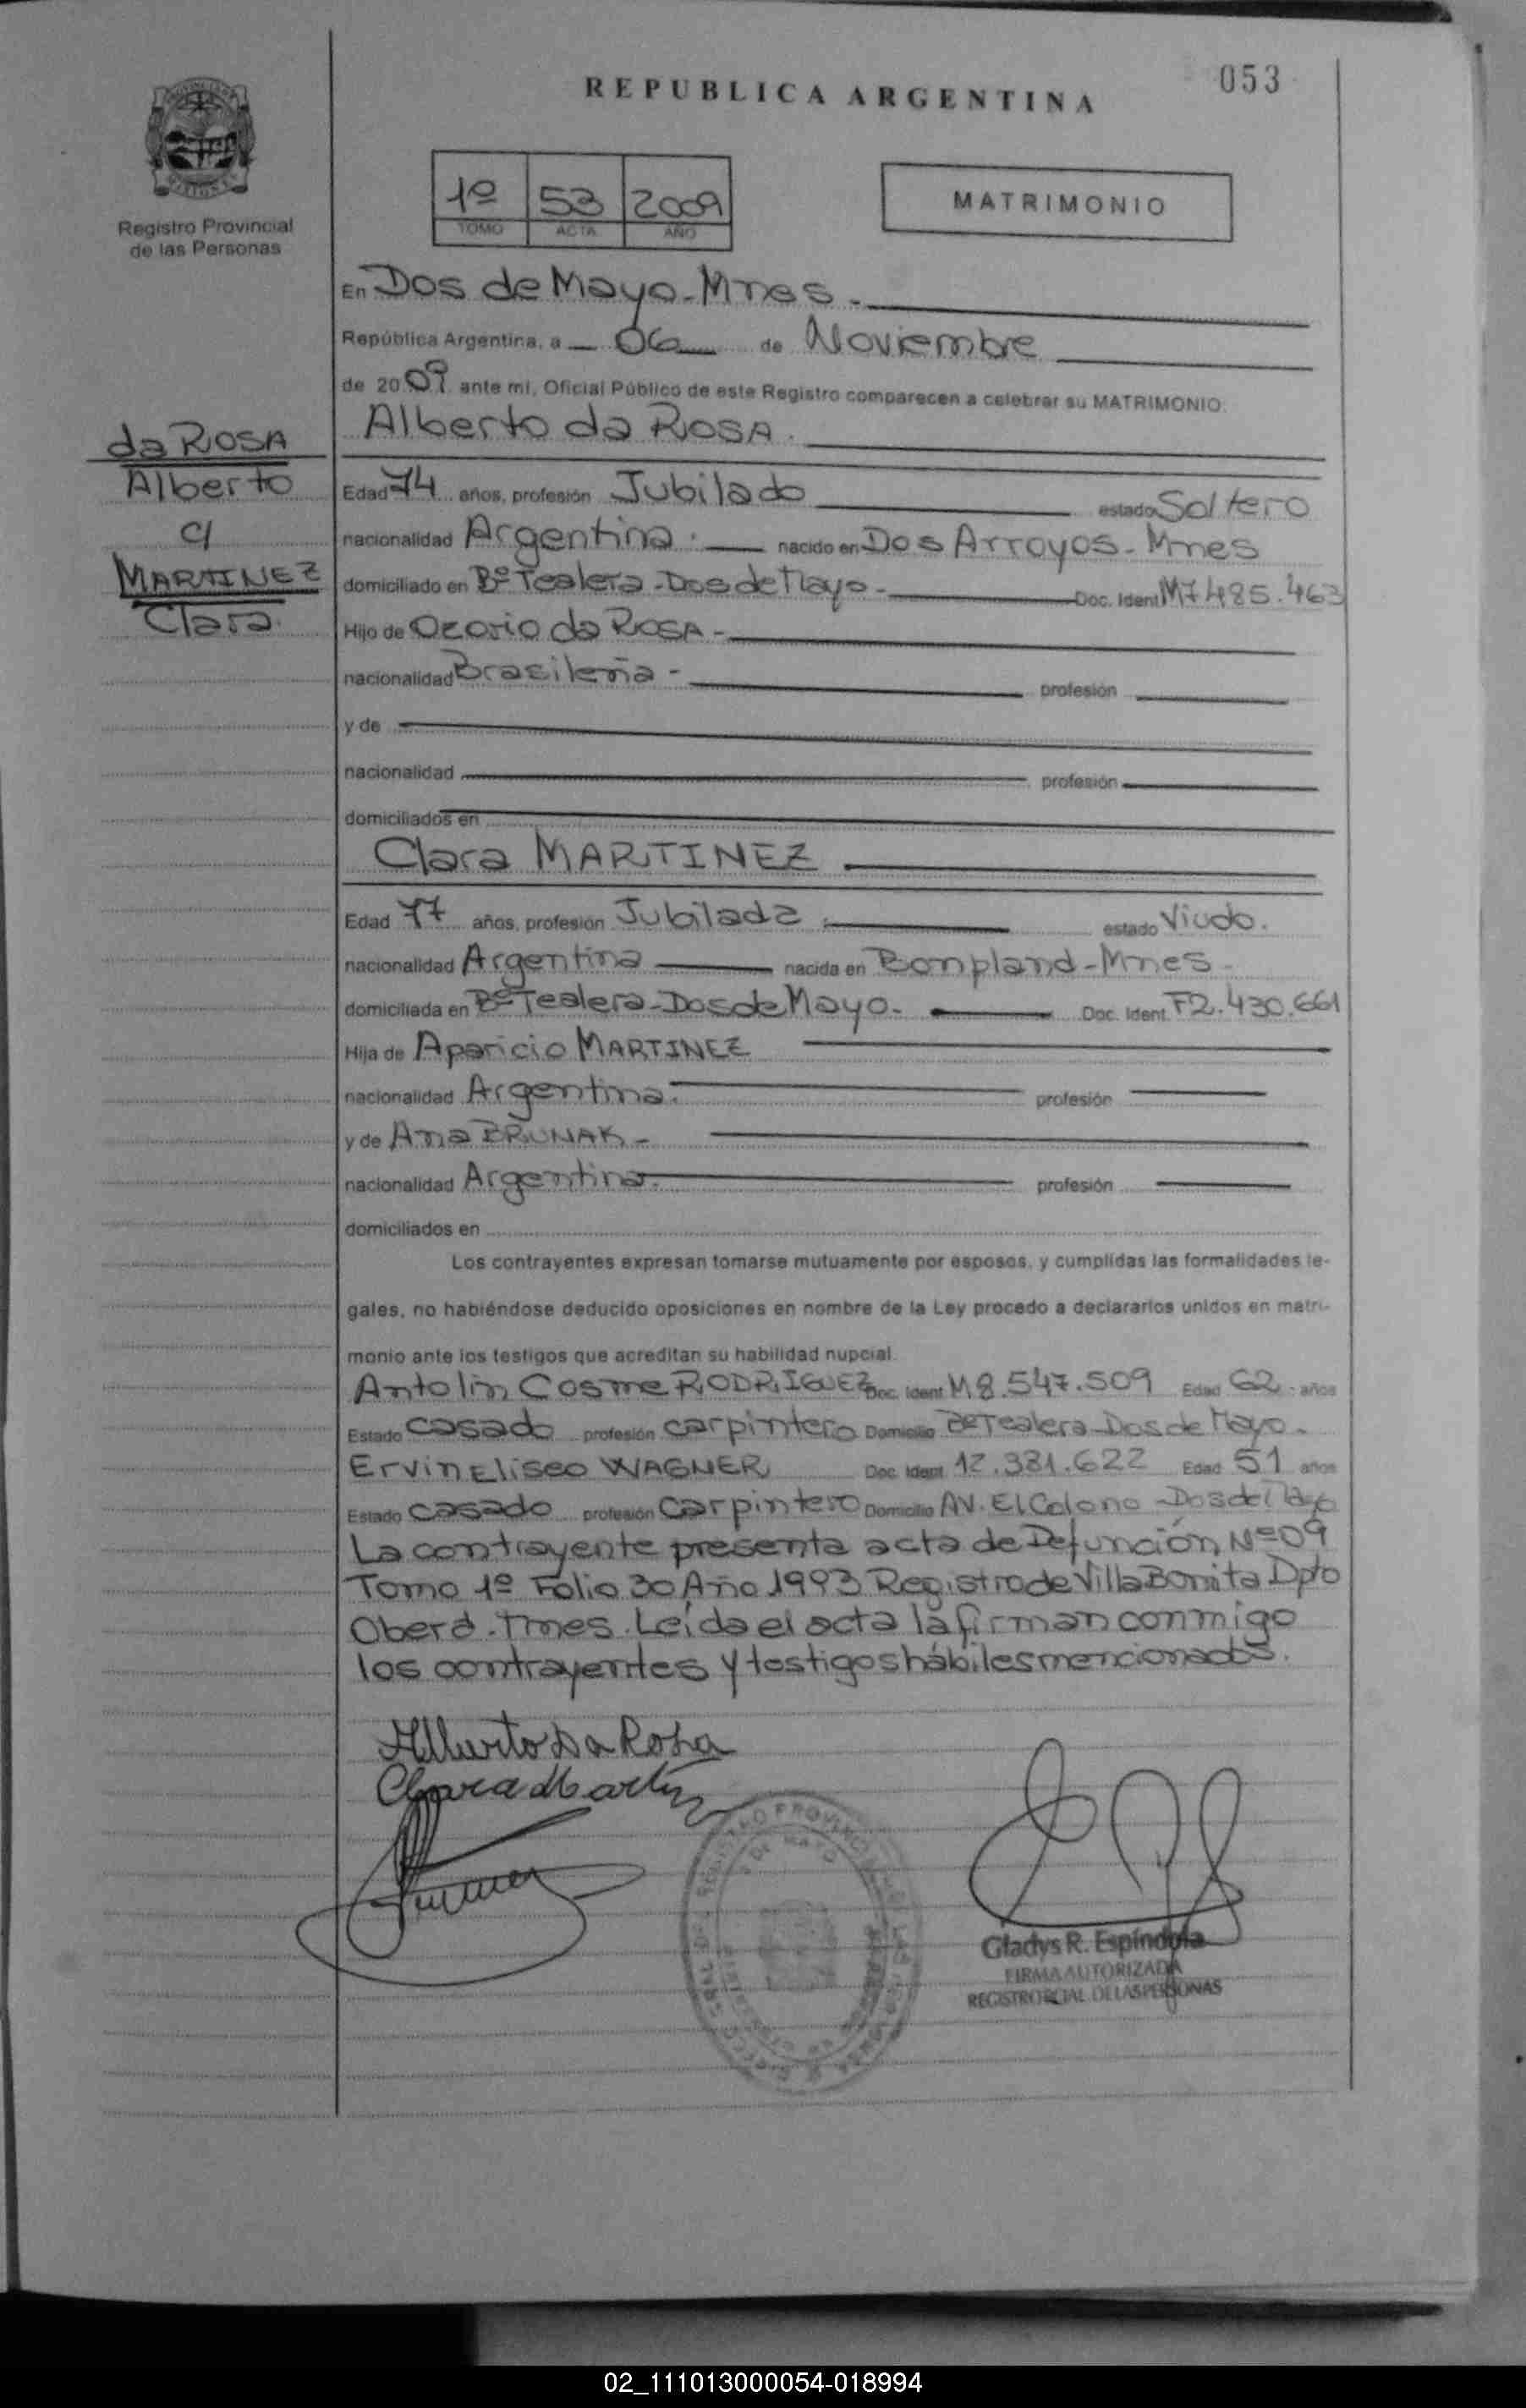 053
REPUBLICA ARGENTINA
Registro Provincial
de las Personas
1º 53 2009
TOMO ACTA AÑO
MATRIMONIO
En Dos de Mayo-Mnes.
República Argentina, a 06 de Noviembre
de 2009 ante mi, Oficial Público de este Registro comparecen a celebrar su MATRIMONIO:
da ROSA
Alberto
c/
MARTINEZ
Clara.
Alberto da ROSA.
Edad 74 años, profesión Jubilado estado Soltero
nacionalidad Argentina. nacido en Dos Arroyos-Mnes
domiciliado en Bº Tealera-Dos de Mayo- Doc. Ident. M7485.463
Hijo de Ozorio da ROSA-
nacionalidad Brasileña- profesión
y de
nacionalidad profesión
domiciliados en
Clara MARTINEZ
Edad 77 años, profesión Jubilada. estado Viudo.
nacionalidad Argentina nacida en Bonpland-Mnes-
domiciliada en Bº Tealera-Dos de Mayo- Doc. Ident. F2.430.661
Hija de Aparicio MARTINEZ
nacionalidad Argentina. profesión
y de Ana BRUNAK-
nacionalidad Argentina. profesión
domiciliados en
Los contrayentes expresan tomarse mutuamente por esposos, y cumplidas las formalidades le-
gales, no habiéndose deducido oposiciones en nombre de la Ley procedo a declararlos unidos en matri-
monio ante los testigos que acreditan su habilidad nupcial.
Antolin Cosme RODRIGUEZ Doc. Ident M8.547.509 Edad 62 años
Estado casado profesión carpintero Domicilio Bº Tealera-Dos de Mayo.
Ervin Eliseo WAGNER Doc. Ident. 12.381.622 Edad 51 años
Estado casado profesión Carpintero Domicilio AV. El Colono-Dos de Mayo
La contrayente presenta acta de Defunción Nº09
Tomo 1º Folio 30 Año 1993 Registro de Villa Bonita Dpto
Oberá-Mnes. Leída el acta la firman conmigo
los contrayentes y testigos hábiles mencionados.
Alberto Da Rosa
Clara Martinez
REGISTRO PROVINCIAL DE LAS PERSONAS
2 DE MAYO
Gladys R. Espíndola
FIRMA AUTORIZADA
REGISTRO PCIAL. DE LAS PERSONAS
02_111013000054-018994